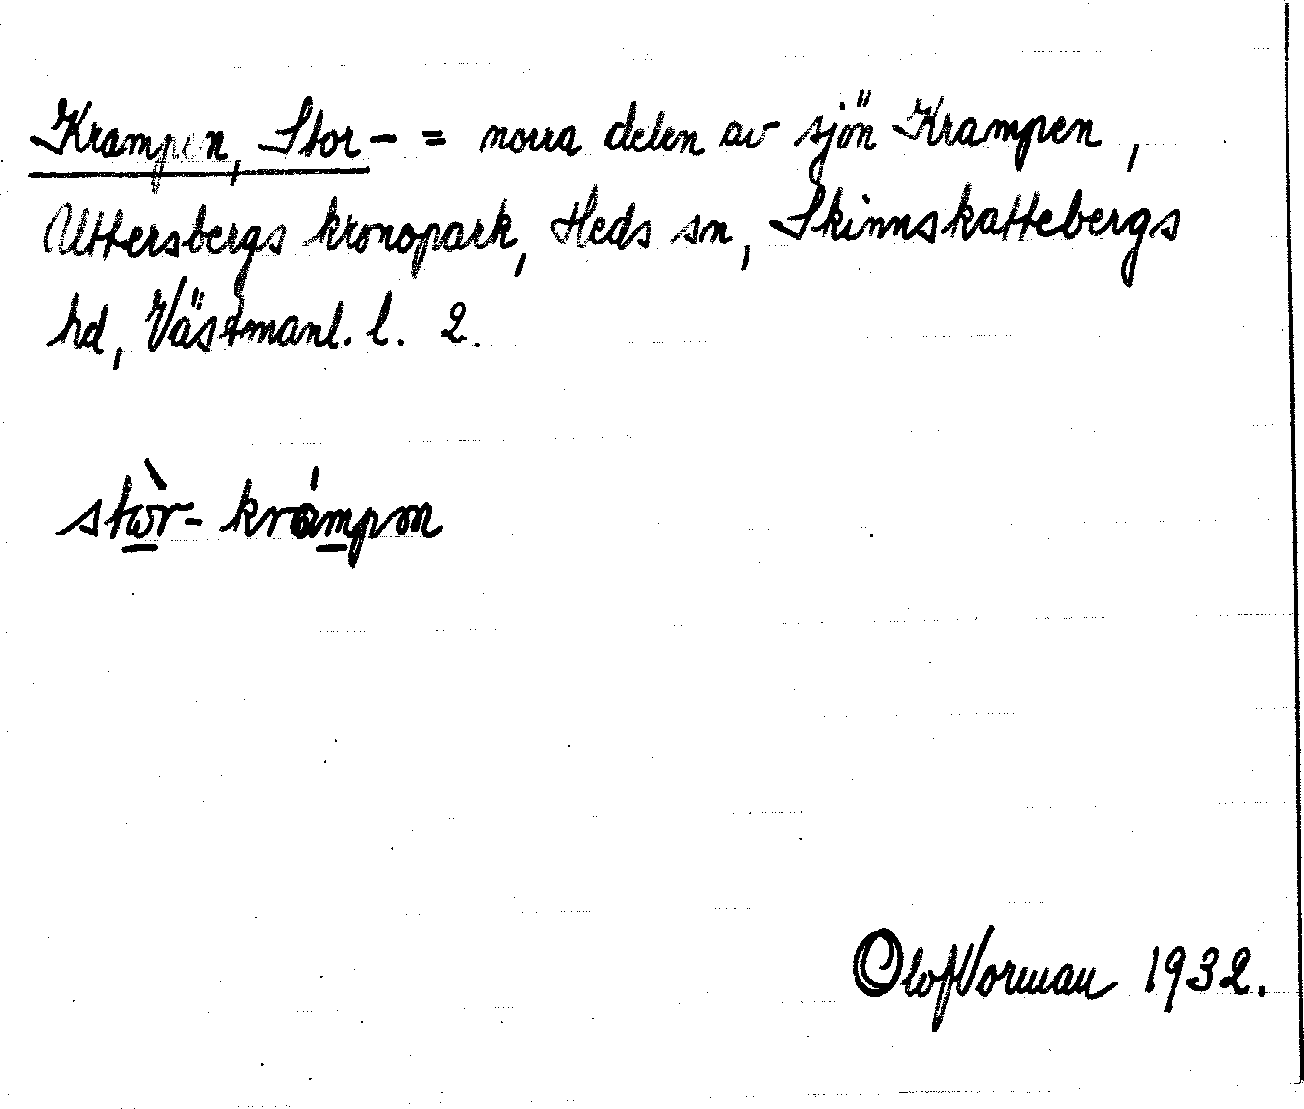 Krampen, Stor- = norra delen av sjön Krampen,
Uttersbergs kronopark, Heds sn, Skinnskattebergs
hd, Västmanl. l. 2.
stòr- krámpm
Olof Vorman 1932.